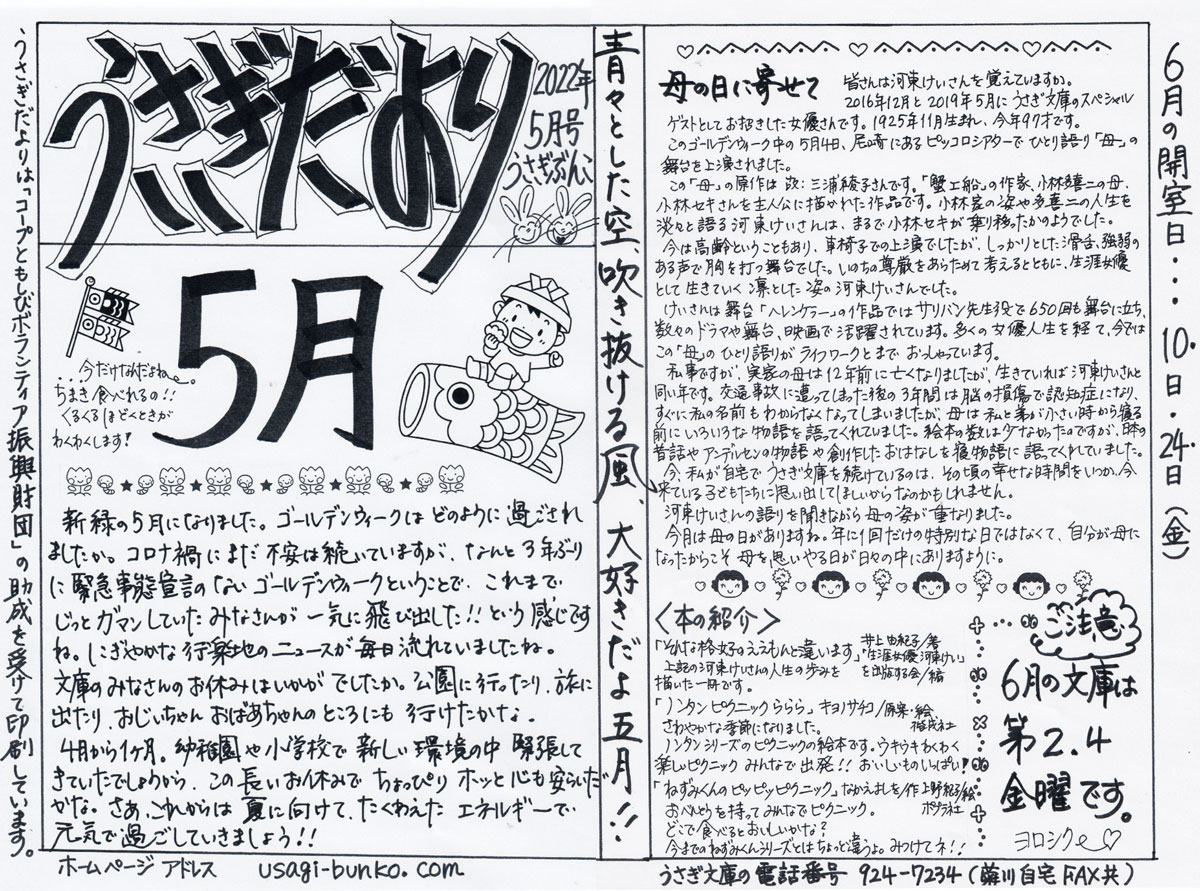 うさぎだより
2022年
5月号
うさぎぶんこ
5月
今だけなんだよね…
ちまき食べれるの!!
くるくるほどくときが
わくわくします!
新緑の5月になりました。ゴールデンウィークはどのように過ごされ
ましたか。コロナ禍にまだ不安は続いていますが、なんと3年ぶり
に緊急事態宣言のないゴールデンウィークということで、これまで
じっとガマンしていたみなさんが一気に飛び出した!!という感じです
ね。にぎやかな行楽地のニュースが毎日流れていましたね。
文庫のみなさんのお休みはいかがでしたか。公園に行ったり、旅に
出たり、おじいちゃんおばあちゃんのところにも行けたかな。
4月から1ヶ月。幼稚園や小学校で新しい環境の中緊張して
きていたでしょうから、この長いお休みでちょっぴりホッと心も安らいだ
かな。さあ、これからは夏に向けて、たくわえたエネルギーで
元気で過ごしていきましょう!!
うさぎだよりは「コープともしびボランティア振興財団」の助成を受けて印刷しています。
ホームページアドレス usagi-bunko.com
青々とした空、吹き抜ける風、大好きだよ五月!!
母の日に寄せて
皆さんは河東けいさんを覚えていますか。
2016年12月と2019年5月にうさぎ文庫のスペシャル
ゲストとしてお招きした女優さんです。1925年11月生まれ、今年97才です。
このゴールデンウィーク中の5月4日、尼崎にあるピッコロシアターでひとり語り「母」の
舞台を上演されました。
この「母」の原作は 故:三浦綾子さんです。「蟹工船」の作家、小林多喜二の母、
小林セキさんを主人公に描かれた作品です。小林家の姿や多喜二の人生を
淡々と語る河東けいさんは、まるで小林セキが乗り移ったかのようでした。
今は高齢ということもあり、車椅子での上演でしたが、しっかりとした滑舌、強弱の
ある声で胸を打つ舞台でした。いのちの尊厳をあらためて考えるとともに、生涯女優
として生きていく凛とした姿の河東けいさんでした。
けいさんは舞台「ヘレンケラー」の作品ではサリバン先生役で650回も舞台に立ち、
数々のドラマや舞台、映画で活躍されています。多くの女優人生を経て、今では
この「母」のひとり語りがライフワークとまでおっしゃっています。
私事ですが、実家の母は12年前に亡くなりましたが、生きていれば河東けいさんと
同い年です。交通事故に遭ってしまった後の3年間は脳の損傷で認知症になり、
すぐに私の名前もわからなくなってしまいましたが、母は私と弟が小さい時から寝る
前にいろいろな物語を語ってくれていました。絵本の数は少なかったのですが、日本の
昔話やアンデルセンの物語や創作したおはなしを寝物語に語ってくれていました。
今、私が自宅でうさぎ文庫を続けているのは、その頃の幸せな時間をいつか、今
来ている子どもたちに思い出してほしいからなのかもしれません。
河東けいさんの語りを聞きながら母の姿が重なりました。
今月は母の日がありますね。年に1回だけの特別な日ではなくて、自分が母に
なったからこそ母を思いやる日が日々の中にありますように。
〈本の紹介〉
「そんな格好のええもんと違います」井上由紀子/著
「生涯女優河東けい」を出版する会/編
上記の河東けいさんの人生の歩みを
描いた一冊です。
「ノンタンピクニックららら」キヨノサチコ/原案・絵
偕成社
さわやかな季節になりました。
ノンタンシリーズのピクニックの絵本です。ウキウキわくわく
楽しいピクニックみんなで出発!!おいしいものいっぱい!
「ねずみくんのピッピッピクニック」なかえよしを/作 上野紀子/絵
ポプラ社
おべんとうを持ってみんなでピクニック。
どこで食べるとおいしいかな?
今までのねずみくんシリーズとはちょっと違うよ。みつけてネ!!
ご注意
6月の文庫は
第2.4
金曜です。
ヨロシク
6月の開室日・・・10日・24日(金)
うさぎ文庫の電話番号 924-7234(蘓川自宅FAX共)